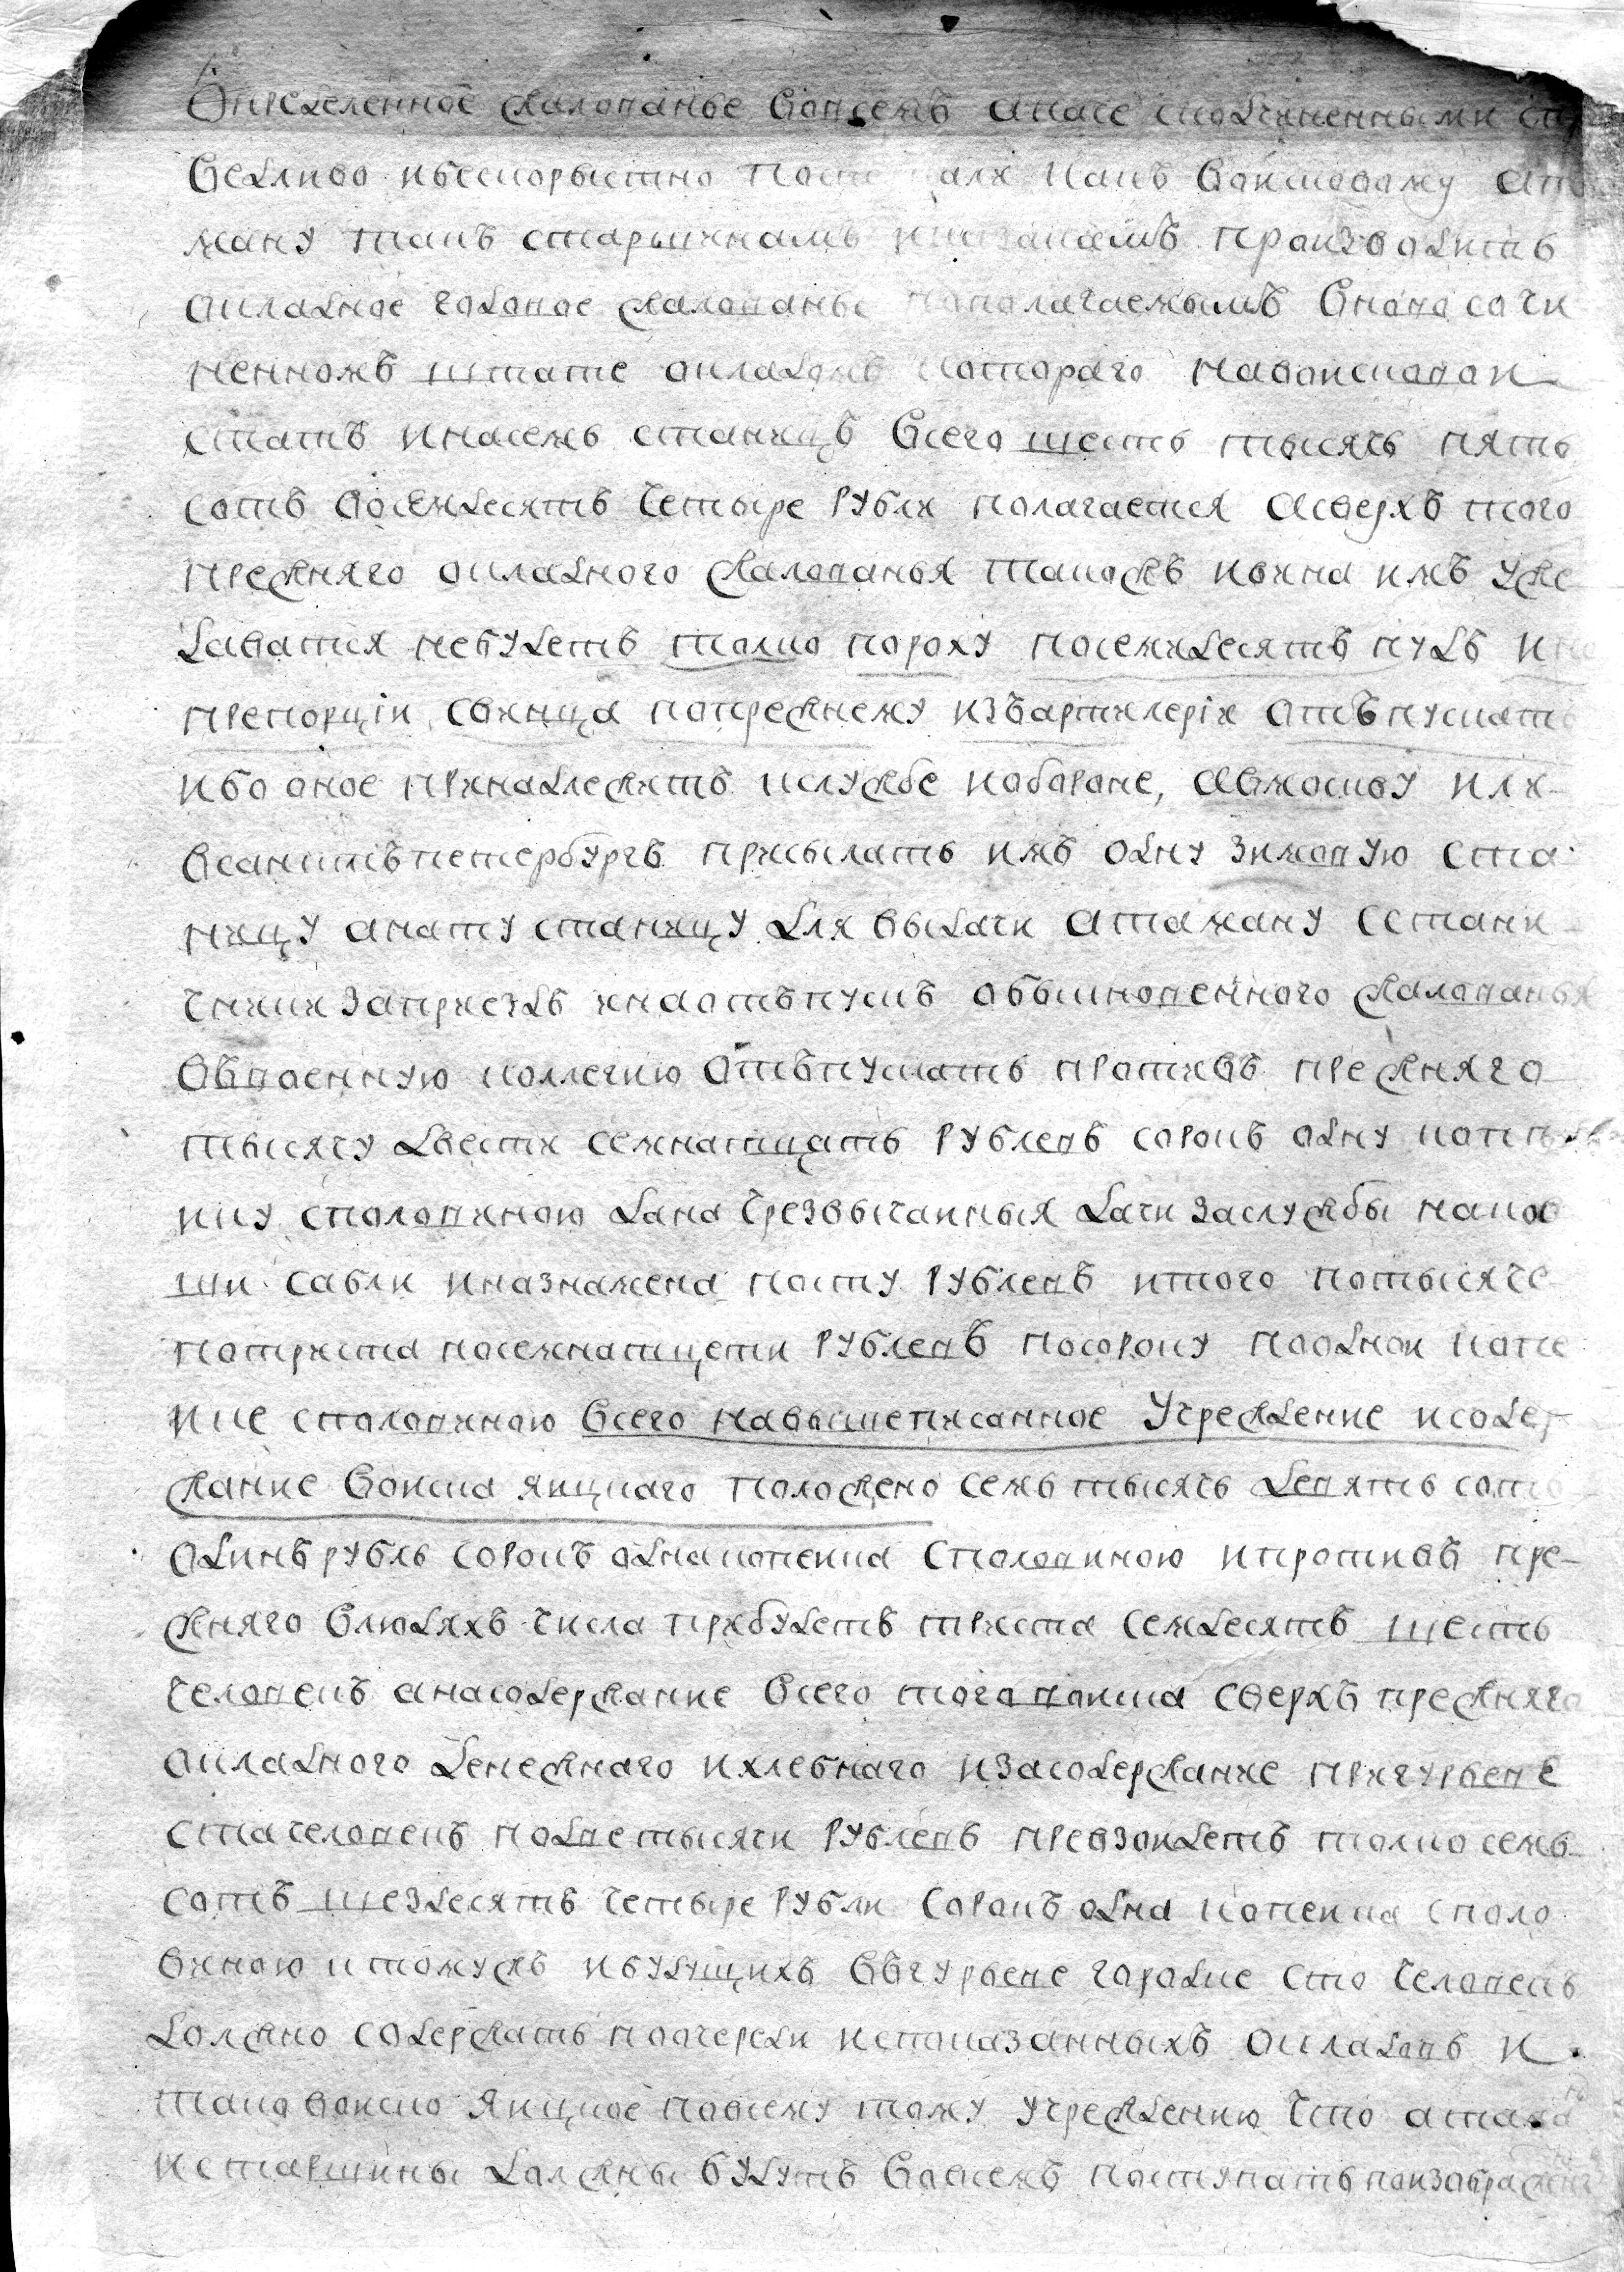 Определенное жалованье вовсемъ аписе сподчиненными сп
ведливо ибескорыстно пост али какъ войсковому ата
ману такъ старшинамъ иказакамъ производить
окладное годовое жалованье пополагаемымъ вново сочи
ненномъ штате окладомъ котораго навойсковой
статъ инасемь станицъ всего шесть тысячь пять
сотъ восемдесятъ четыре рубли полагается асверхъ того
прежняго окладного жалованья такожъ ивина имъ уже
даватся небудетъ толко пороху посемидесятъ пудъ ипо
препорціи свинца попрежнему изъартилеріи отъпускать
ибо оное принадлежитъ кслужбе кобороне, авмоскву или
всанктъпетербургъ присылать имъ одну зимовую ста
ницу анату станицу для выдачи атаману сстани
чники заприездъ инаотъпускъ обыкновенного жалованья
овъвоенную коллегию отъпускать противъ прежняго
тысячу двести семнатцать рублевъ сорокъ одну копей
ику сполованою дана чрезвычайныя дачи заслужбы наков
ши сабли иназнамена посту рублевъ итого потысяче
потриста посемнатцети рублевъ посороку поодной копе
ике сполованою всего навышеписанное учреждение исодер
жание войска яицкаго положено семь тысячь девять сотъ
одинъ рубль сорокъ одна копейка сполованою ипротивъ пре
жняго влюдяхъ числа прибудетъ триста семдесятъ шесть
человекъ анасодержание всего того войска сверхъ прежняго
окладного денежнаго ихлебнаго изасодержание пригурьеве
ста человекъ подве тысячи рублевъ превзойдетъ толко семь
сотъ шездесятъ четыре рубли сорокъ одна копейка споло
виною ктомужъ ибудущихъ въгурьеве городке сто человекъ
должно содержать поочереди испоказанныхъ окладовъ и
тако войско яицкое повсему тому учреждению что атама
истаршины должны будутъ вовсемъ поступать поизображен